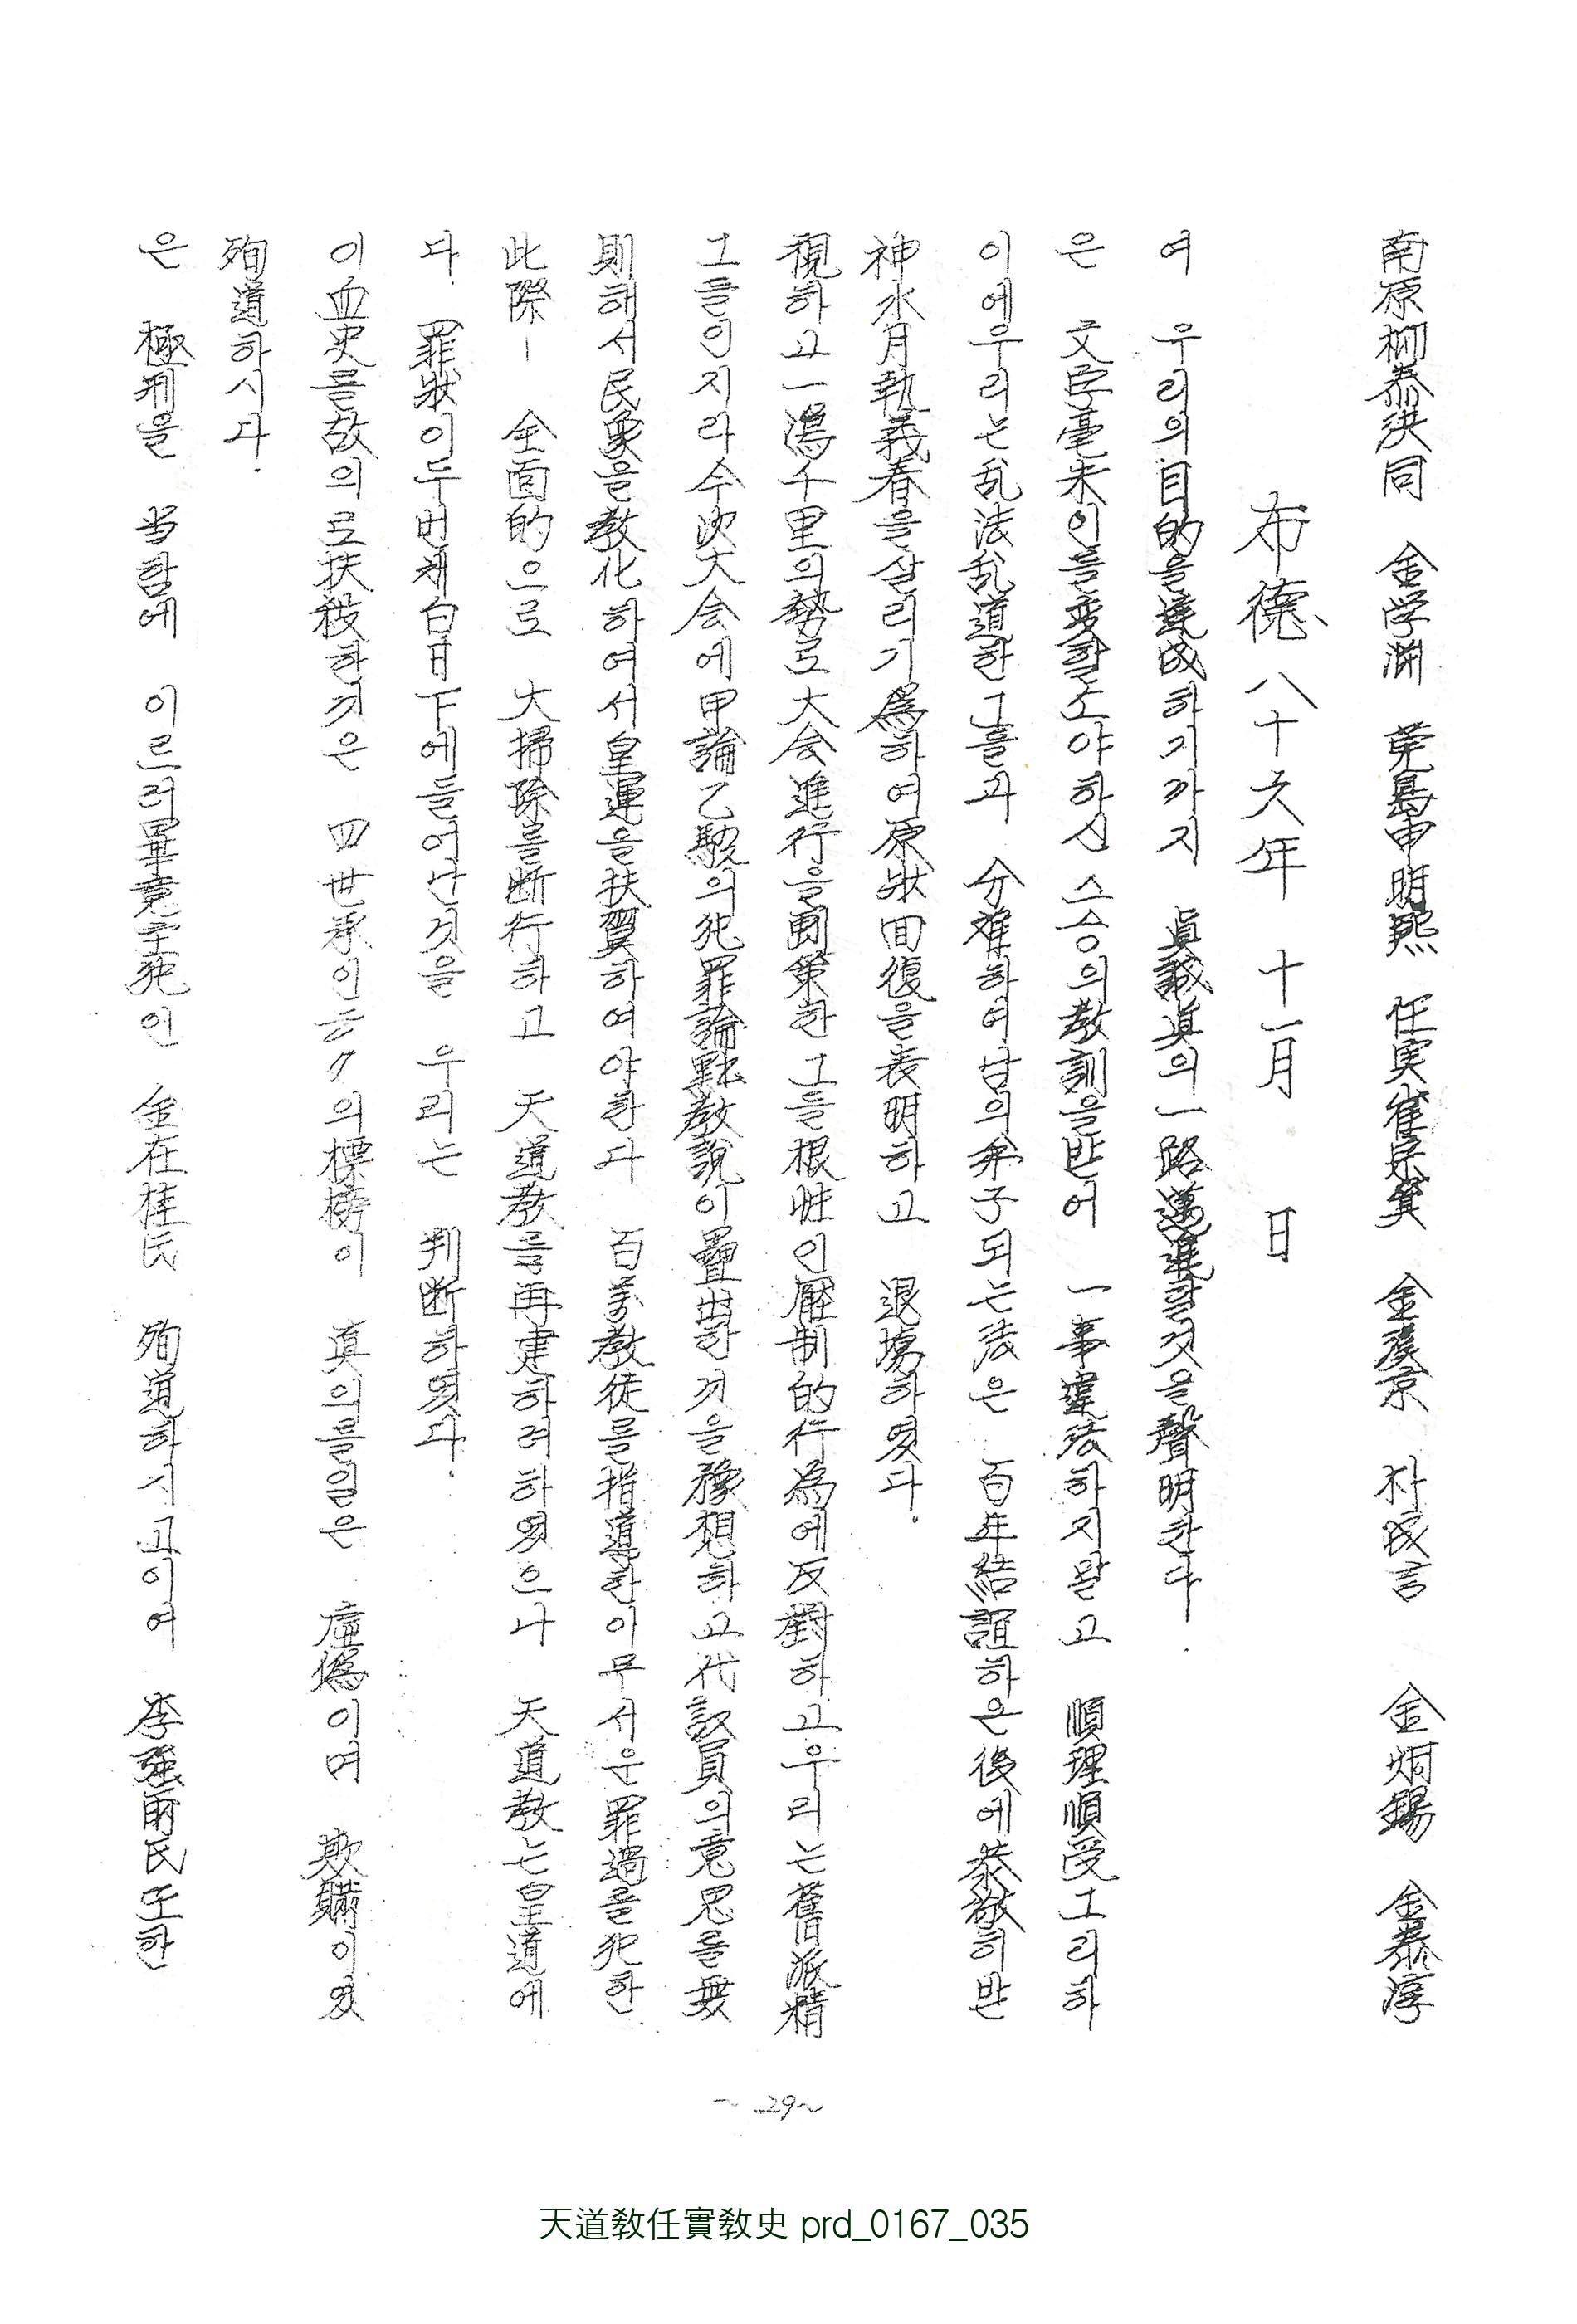 南原柳泰洪同 金学洙 莞島申明熙 任実崔宗箕 金漢京 朴成言 金炯錫 金泰淳
布德八十六年 十一月 日
여 우리의 目的을 達成하기까지 眞誠眞의 一路邁進할것을 聲明한다.
은 文字毫末이들 変할소야하신 스승의 敎訓을받어 一事違法하지말고 順理順受그리하
이에우리는 乱法乱道한그들과 分離하여남의 弟子되는法은 百年結誼하온後에 恭敬히받
神水月執義春을살리기 爲하여原狀回復을表明하고 退場하였다.
視하고一瀉千里의勢로大会進行을劃策한그들根性인壓制的行爲에反對하고우리는舊派精
그들인지라今次大会에甲論乙駁의犯罪論點敎說이疊出한것을豫想하고代議員의意思를無
則해서民衆을敎化하여서皇運을扶翼하여야한다 百萬敎徒를指導한이무서운罪過를犯한
此際ㅣ 全面的으로 大掃除를断行하고 天道敎를再建하려하였으나 天道敎는皇道에
다. 罪狀이두번채白日下에들어난것을 우리는 判断하였다.
이血史를故의로扶殺하기은 四世承인云々의標榜이 眞의를잃은 虛僞이며 欺瞞이였
殉道하시다.
은 極刑을 当함에 이르러畢竟至死인 金在桂氏 殉道하시고이여 李强雨氏또한
~29~
天道敎任實敎史 prd_0167_035